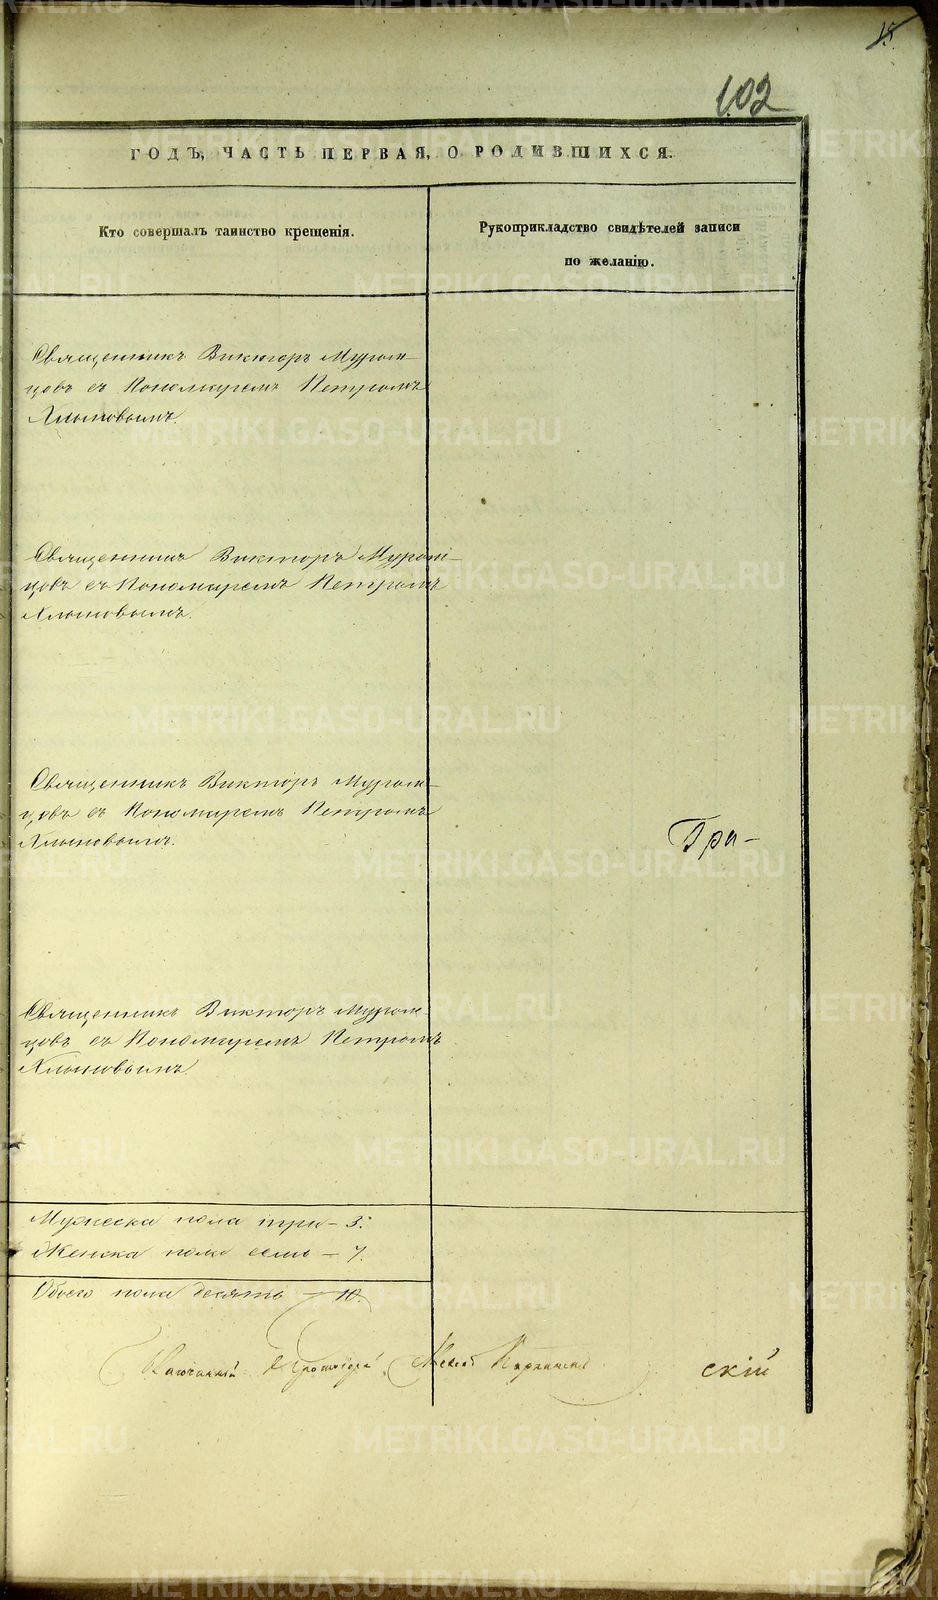 15.
102
ГОДЪ, ЧАСТЬ ПЕРВАЯ, О РОДИВШИХСЯ.
Кто совершалъ таинство крещенія.
Рукоприкладство свидѣтелей записи
по желанію.
Священникъ Викторъ Муром-
цовъ съ Пономаремъ Петромъ
Хлыновымъ.
Священникъ Викторъ Муром-
цовъ съ Пономаремъ Петромъ
Хлыновымъ.
Священникъ Викторъ Муром-
цовъ съ Пономаремъ Петромъ
Хлыновымъ.
Гри-
Священникъ Викторъ Муром-
цовъ съ Пономаремъ Петромъ
Хлыновымъ.
Мужеска пола три - 3.
Женска пола семь - 7.
Обоего пола десять - 10.
Протоіерей
скій
METRIKI.GASO-URAL.RU